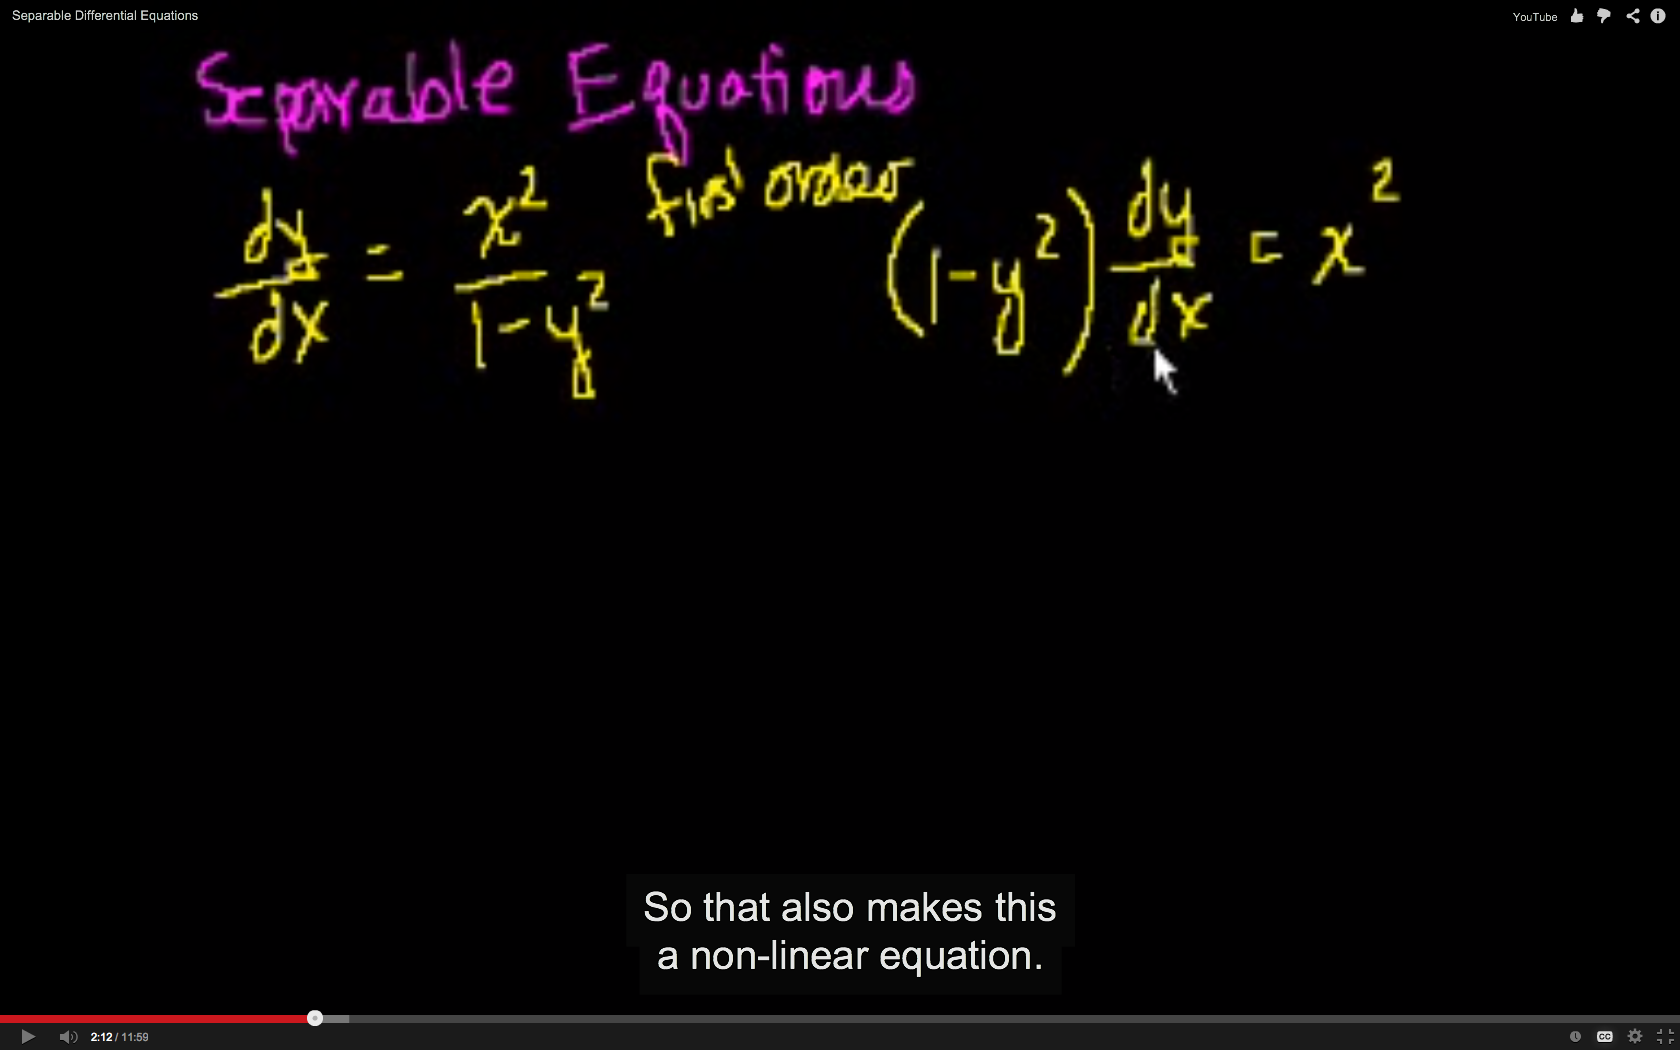 Separable Differential Equations
YouTube
Separable Equations
dy/dx = x²/(1-y²)
first order
(1-y²) dy/dx = x²
So that also makes this
a non-linear equation.
2:12 / 11:59
CC